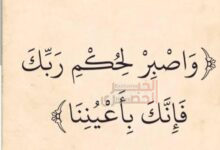 ﴿وَاصْبِرْ لِحُكْمِ رَبِّكَ
فَإِنَّكَ بِأَعْيُنِنَا﴾